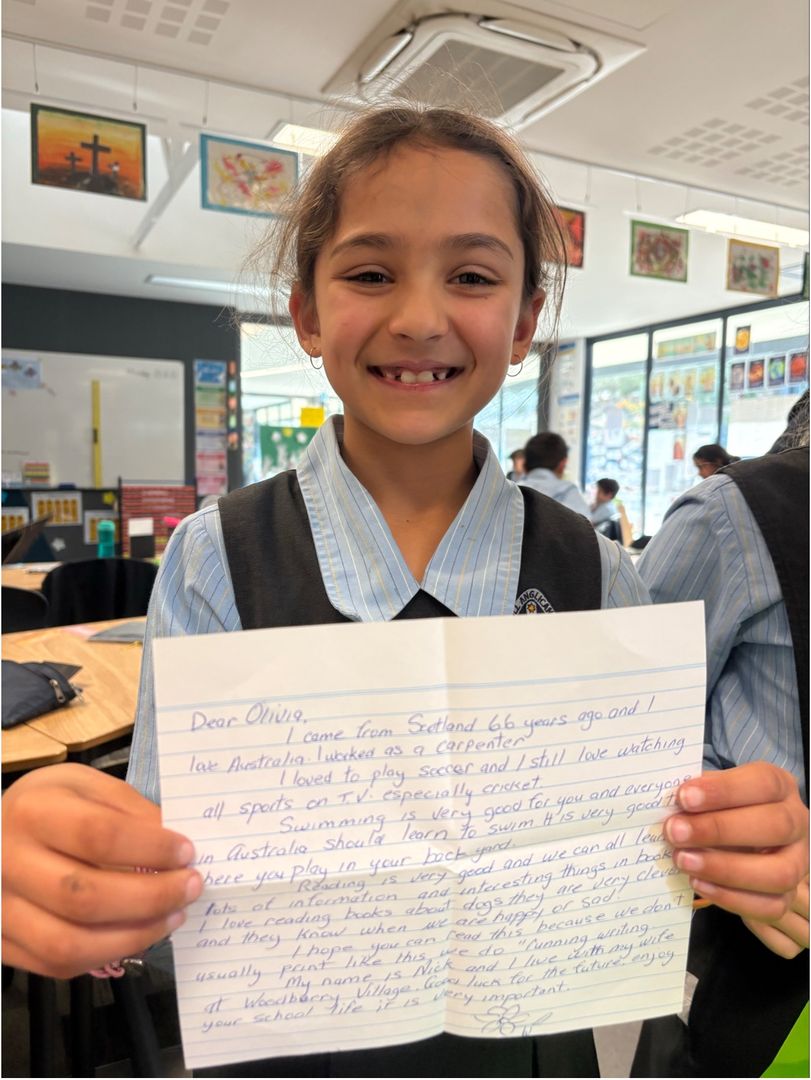 Dear Olivia,
I came from Scotland 66 years ago and I
love Australia. I worked as a carpenter
I loved to play soccer and I still love watching
all sports on T.V. especially cricket.
Swimming is very good for you and everyone
in Australia should learn to swim It is very good
here you play in your back yard.
Reading is very good and we can all learn
lots of information and interesting things in books
I love reading books about dogs they are very clever
and they know when we are happy or sad.
I hope you can read this because we don't
usually print like this, we do "running writing
My name is Nick and I live with my wife
at Woodberry Village. Good luck for the future enjoy
your school life it is very important.
ANGLICAN